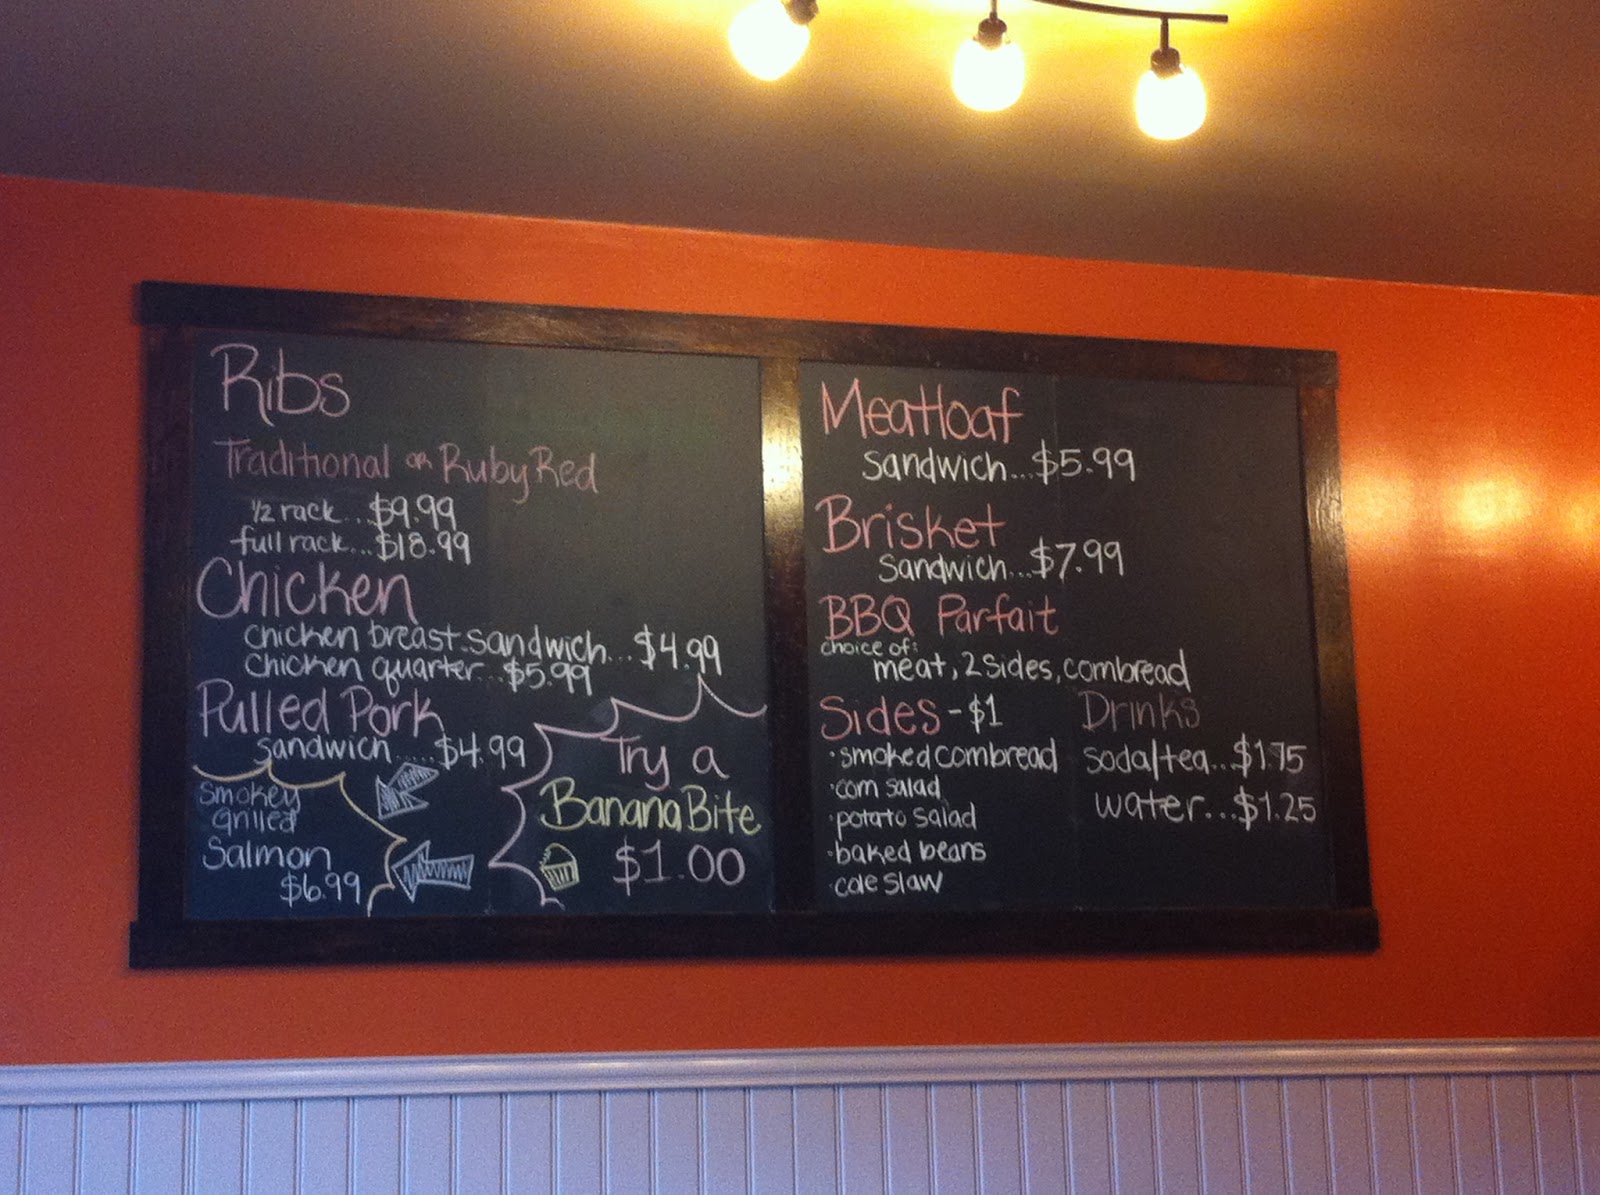 Ribs
Traditional or Ruby Red
1/2 rack...$9.99
full rack...$18.99
Chicken
chicken breast sandwich...$4.99
chicken quarter...$5.99
Pulled Pork
sandwich.....$4.99
Smokey
Grilled
Salmon
$6.99
Try a
Banana Bite
$1.00
Meatloaf
sandwich...$5.99
Brisket
sandwich...$7.99
BBQ Parfait
choice of:
meat, 2 sides, cornbread
Sides - $1
•smoked cornbread
•corn salad
•potato salad
•baked beans
•cole slaw
Drinks
soda/tea...$1.75
water...$1.25